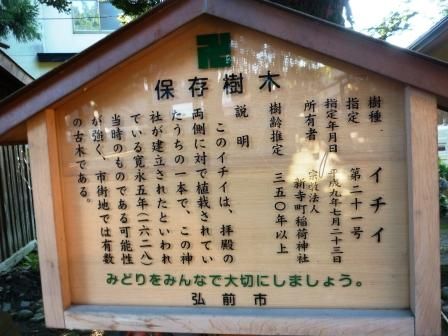 保存樹木
樹種　イチイ
指定　第二十一号
指定年月日　平成九年七月二十三日
所有者　宗教法人　新寺町稲荷神社
樹齢推定　三五〇年以上
説明
このイチイは、拝殿の
両側に対で植栽されてい
たうちの一本で、この神
社が建立されたといわれ
ている寛永五年(一六二八)
当時のものである可能性
が強く、市街地では有数
の古木である。
みどりをみんなで大切にしましょう。
弘前市